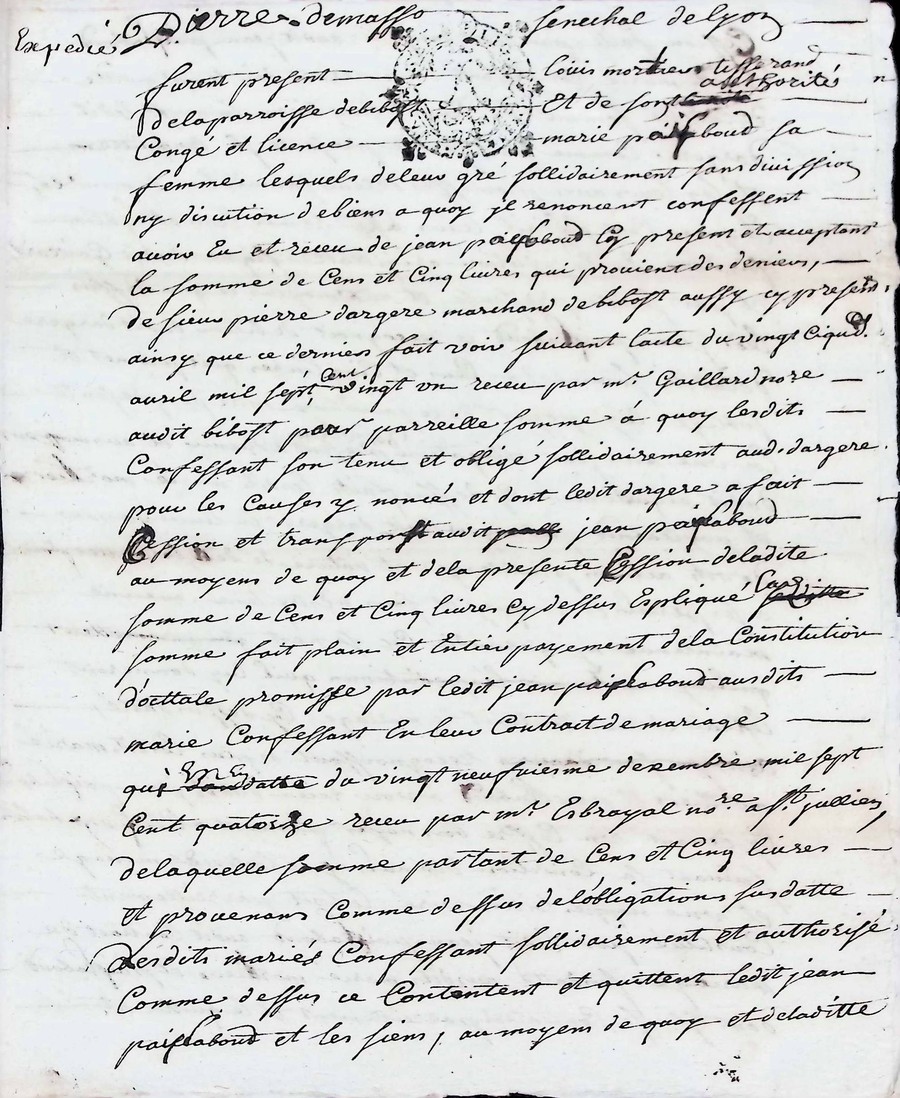 Expedié Pierre demasso senechal de lyon
furent present louis mortier tisserand
de la parroisse debibost Et de son authorité
Congé et licence marie paissaboud sa
femme lesquels deleur gré sollidairement sans divission
ny discution debiens a quoy jl renoncent confessent
avoir Eu et receu de jean paissaboud Cy present et acceptant
la somme de Cens et Cinq livres qui provient des deniers,
de sieur pierre dargere marchand debibost aussy cy present,
ainsy que ce dernier fait voir suivant lacte du vingt Ciq
avril mil sept Cent vingt un receu par mr. Gaillard nore
audit bibost pour parreille somme á quoy lesdits
Confessant son tenu et obligé sollidairement aud. dargere.
pour les Causes y noncés et dont ledit dargere a fait
Cession et transport audit jean paissaboud
au moyens de quoy et dela presente Cession deladite
somme de Cens et Cinq livres Cy dessus Expliqué
somme fait plain et Entier payement dela Constitution
d'octtale promisse par ledit jean paissaboud ausdits
marie Confessant En leur Contract de mariage
qui du vingt neufviesme dexembre mil sept
Cent quatorze receu par mr. Esbrayal nore a st. jullien,
delaquelle somme partant de Cens et Cinq livres
et provenans Comme dessus de lóbligations susdatte
Lesdits mariés Confessant sollidairement et authorisé
Comme dessus ce Contentent et quittent ledit jean
paissaboud et les siens, au moyens de quoy et deladitte